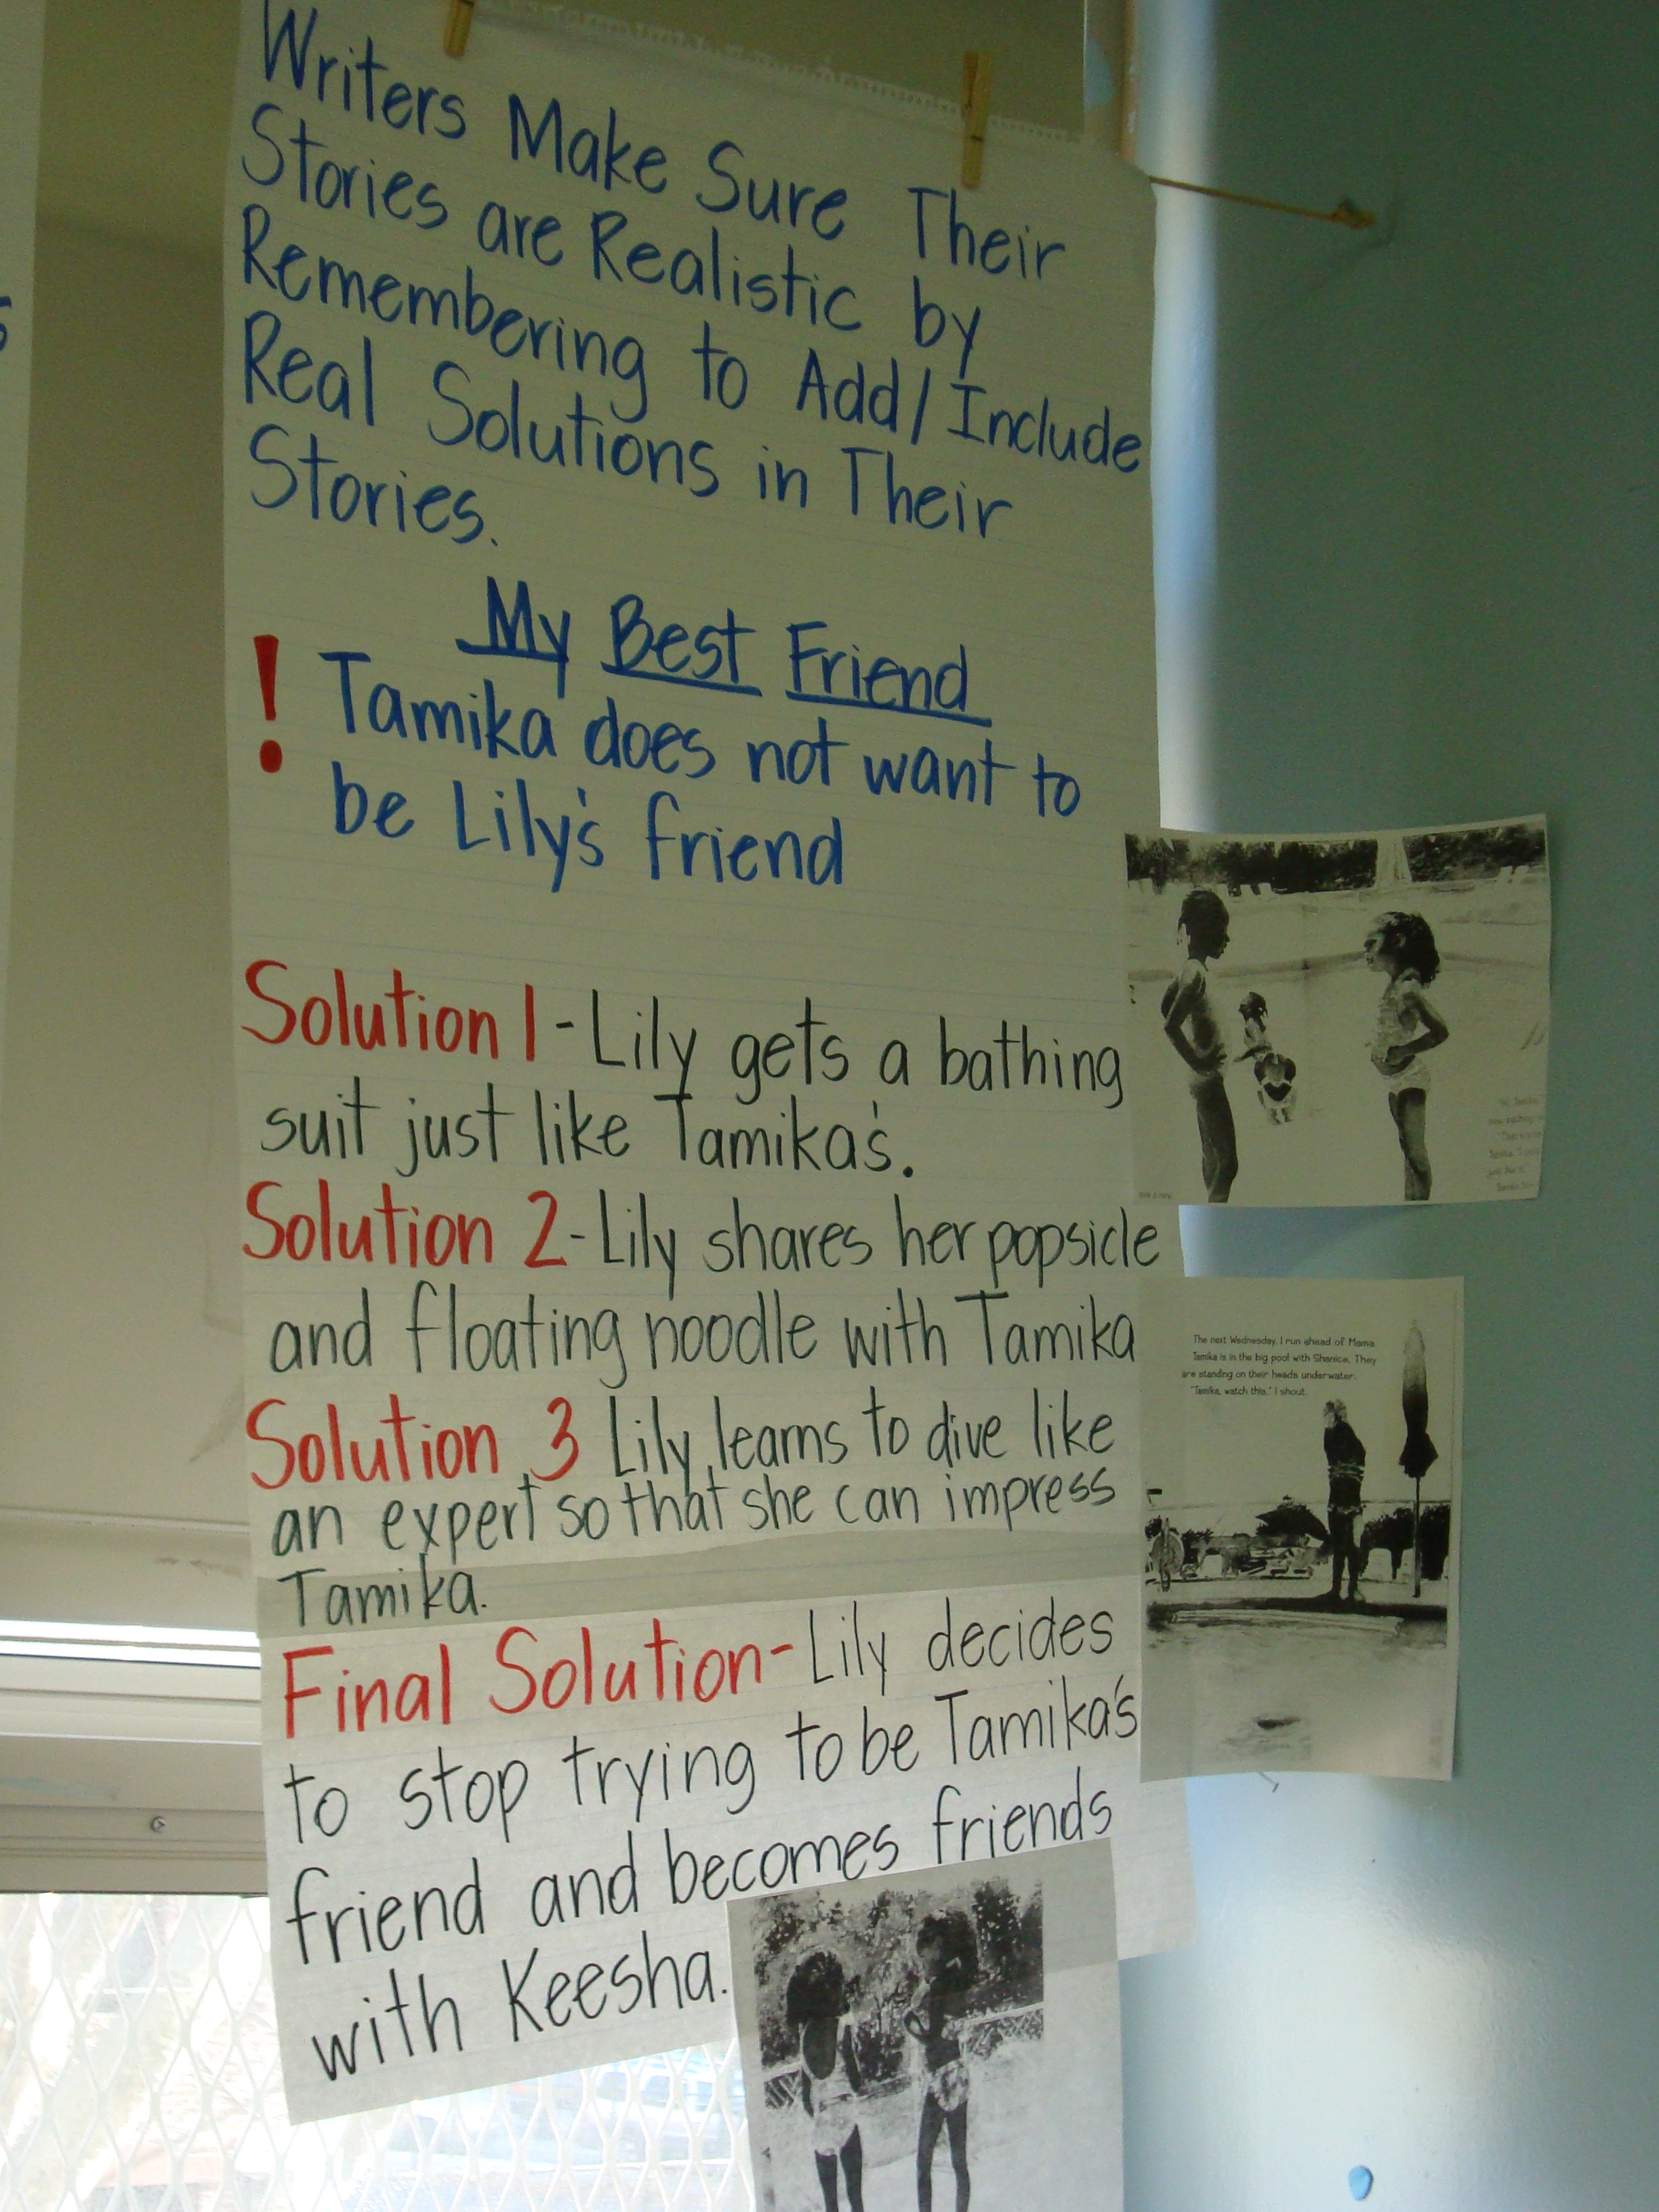 Writers Make Sure Their
Stories are Realistic by
Remembering to Add/Include
Real Solutions in Their
Stories.
My Best Friend
! Tamika does not want to
be Lily's friend
Solution 1-Lily gets a bathing
suit just like Tamika's.
Solution 2-Lily shares her popsicle
and floating noodle with Tamika
Solution 3 Lily learns to dive like
an expert so that she can impress
Tamika.
Final Solution-Lily decides
to stop trying to be Tamika's
friend and becomes friends
with Keesha.
The next Wednesday, I run ahead of Mama.
Tamika is in the big pool with Shanice. They
are standing on their heads underwater.
"Tamika, watch this," I shout.